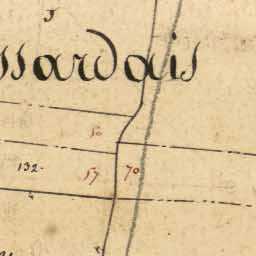 ssardais
50
132.
57 70